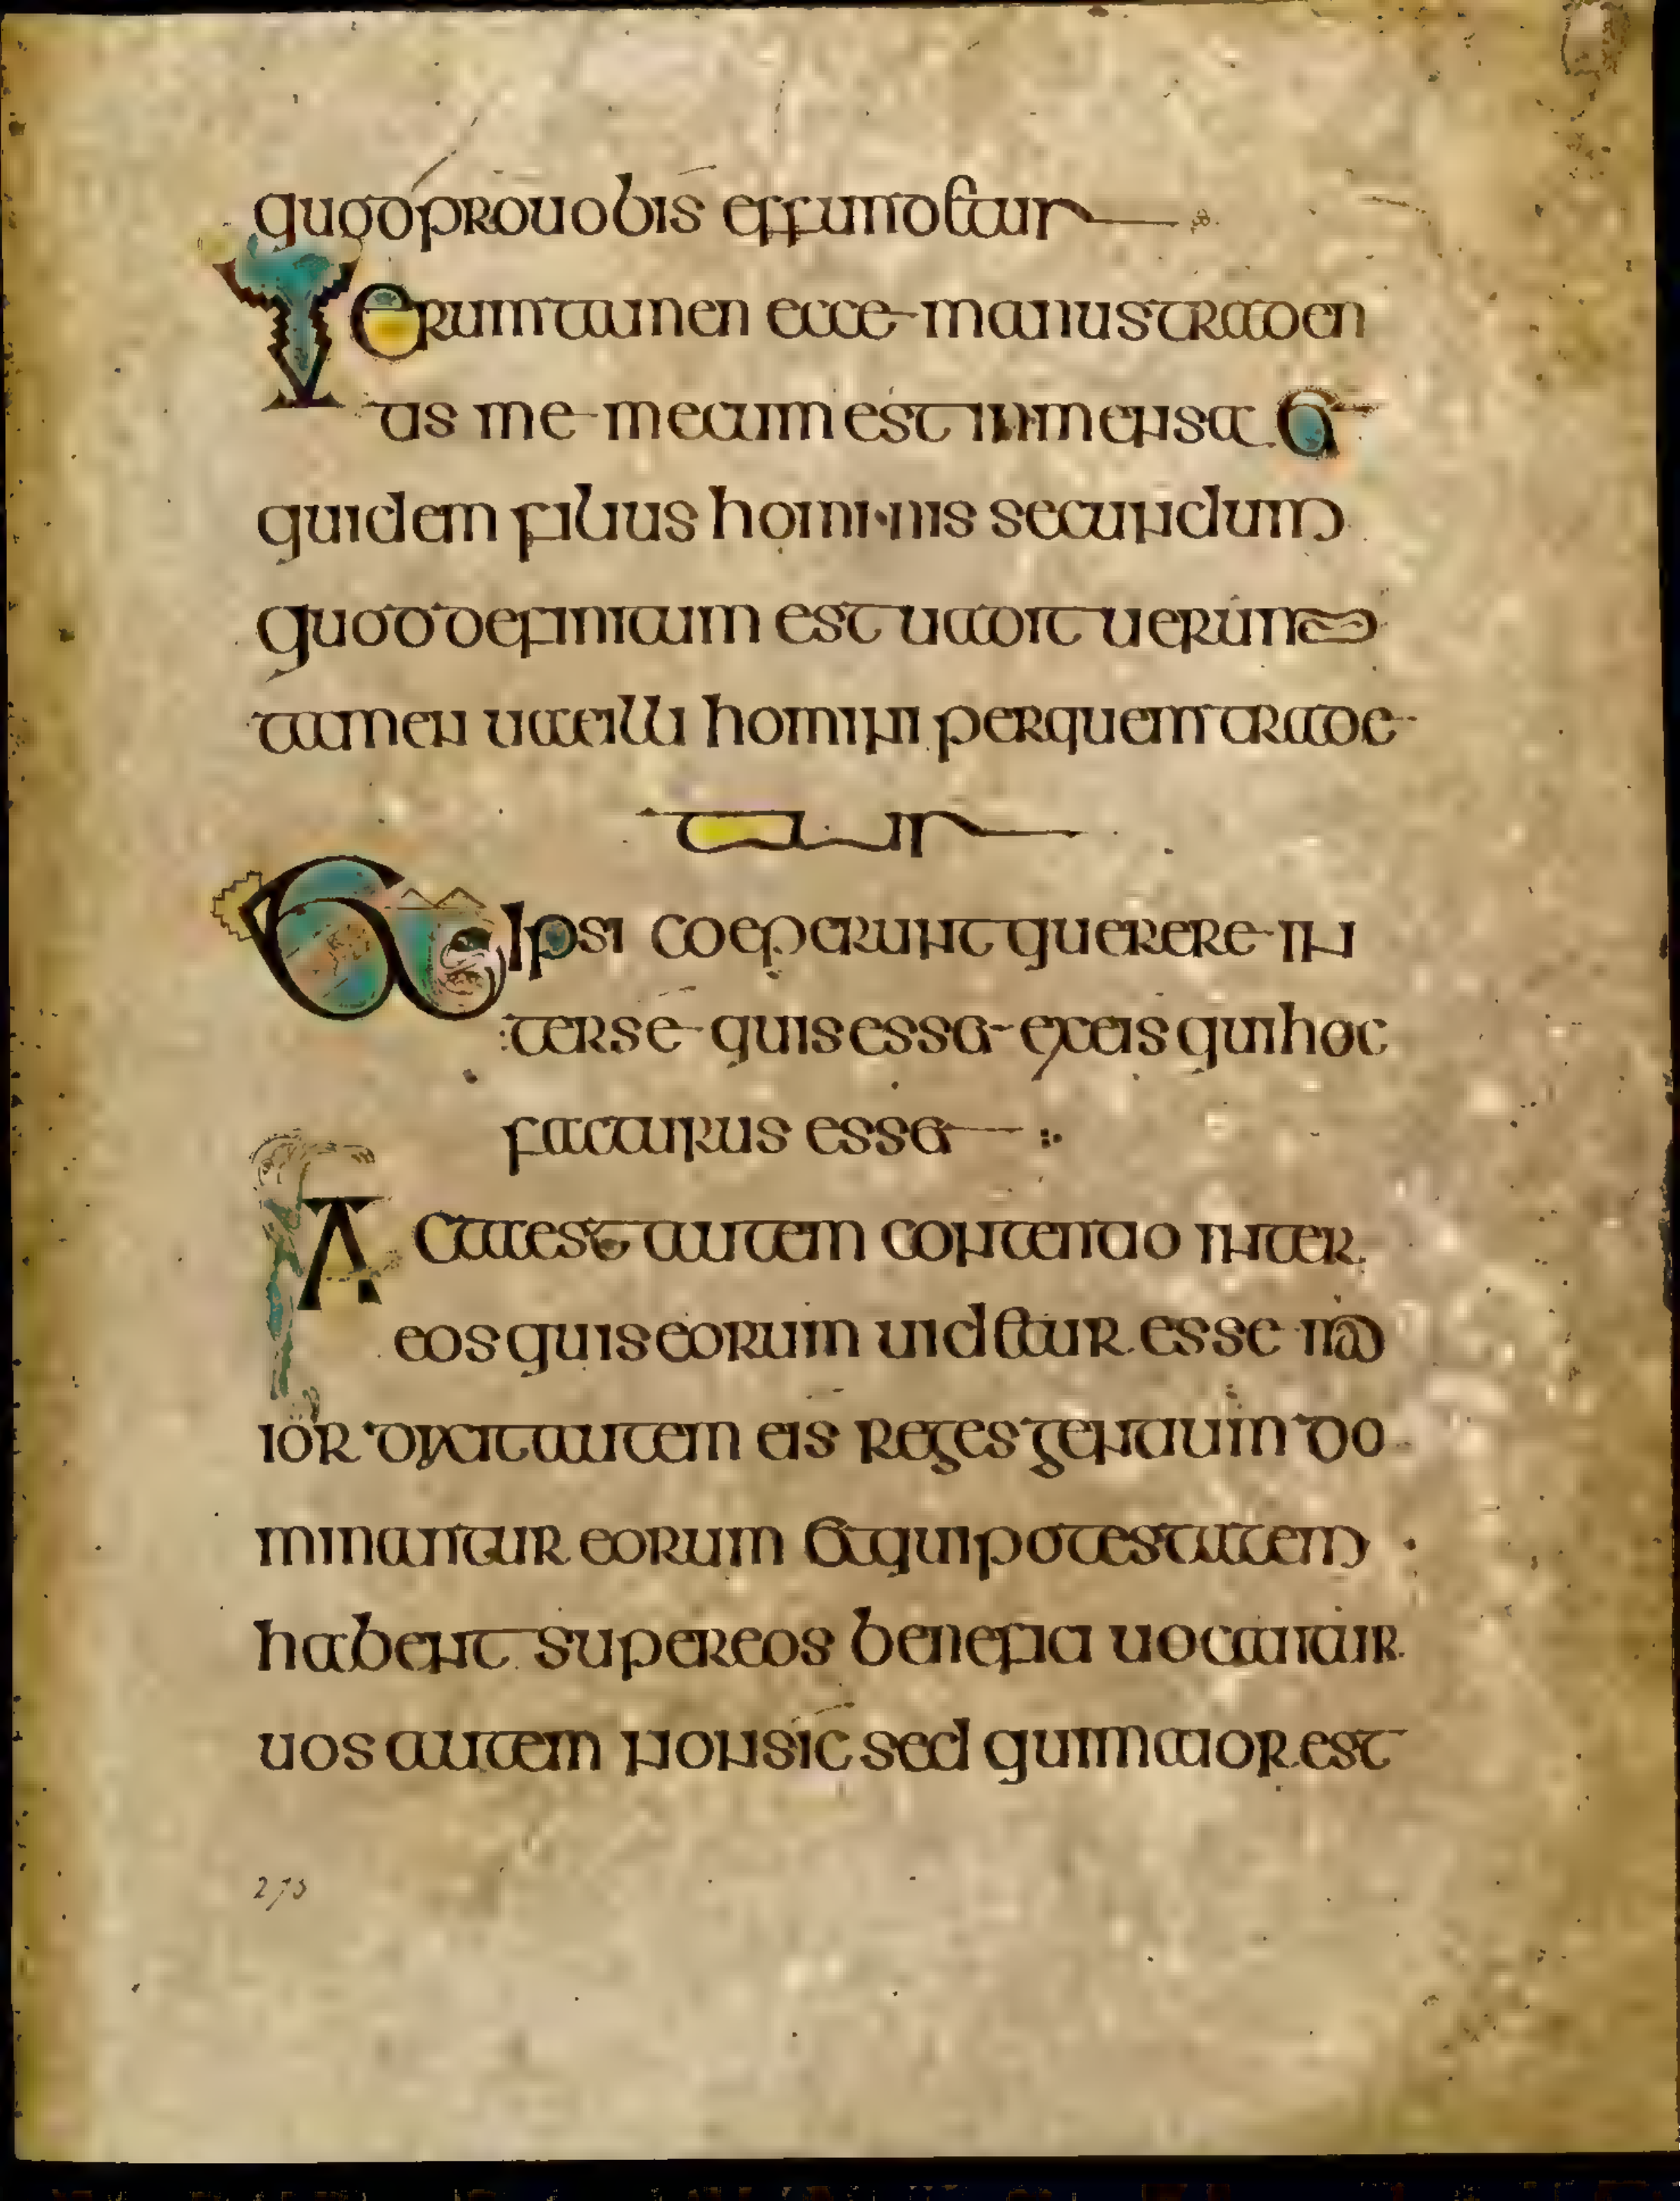 quod pro uobis effundetur
Uerum tamen ecce manus traden
tis me mecum est in mensa et
quidem filius hominis secundum
quod definitum est uadit uerum
tamen uae illi homini per quem trade
tur
Et ipsi coeperunt querere in
ter se quis esset ex eis qui hoc
facturus esset
Facta est autem contentio inter
eos quis eorum uidetur esse ma
ior dixit autem eis reges gentium do
minantur eorum et qui potestatem
habent super eos benefici uocantur
uos autem non sic sed qui maior est
273